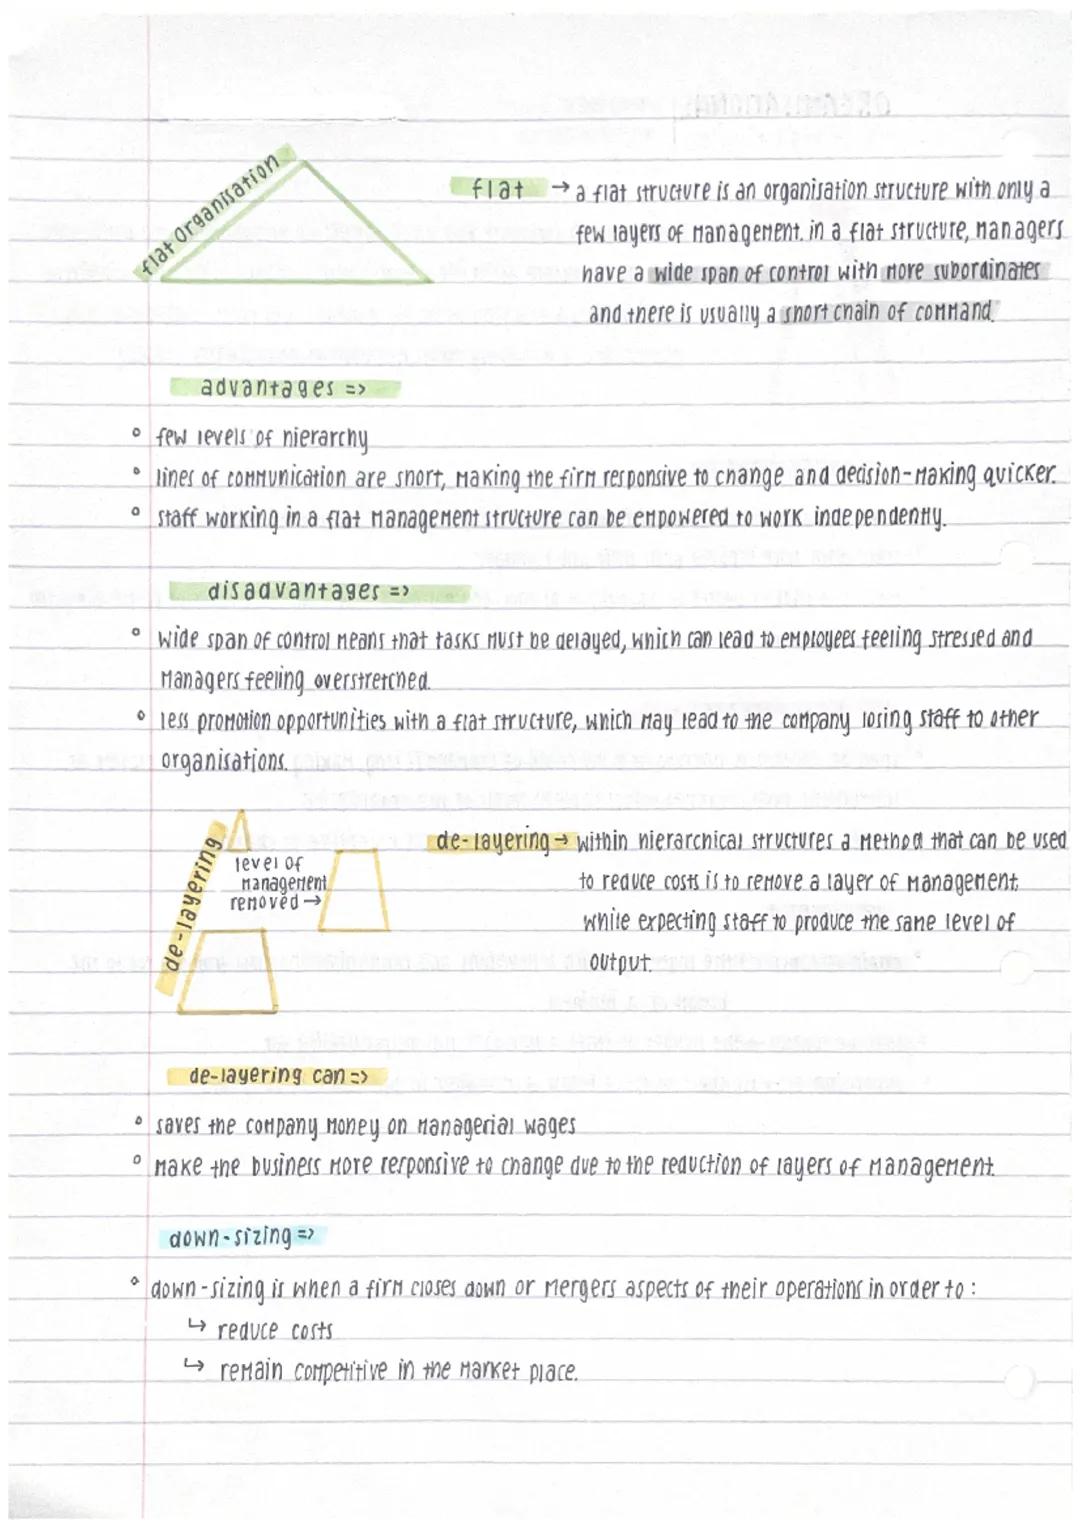 flat organisation
flat → a flat structure is an organisation structure with only a
few layers of management. in a flat structure, managers
have a wide span of control with more subordinates
and there is usually a short chain of command.
advantages =>
° few levels of hierarchy
° lines of communication are short, making the firm responsive to change and decision-making quicker.
° staff working in a flat management structure can be empowered to work independently.
disadvantages =>
° wide span of control means that tasks must be delayed, which can lead to employees feeling stressed and
managers feeling overstretched.
° less promotion opportunities with a flat structure, which may lead to the company losing staff to other
organisations.
de-layering
level of
management
removed →
de-layering → within hierarchical structures a method that can be used
to reduce costs is to remove a layer of management,
while expecting staff to produce the same level of
output.
de-layering can =>
° saves the company money on managerial wages
° make the business more responsive to change due to the reduction of layers of management.
down-sizing =>
° down-sizing is when a firm closes down or mergers aspects of their operations in order to :
↳ reduce costs
↳ remain competitive in the market place.